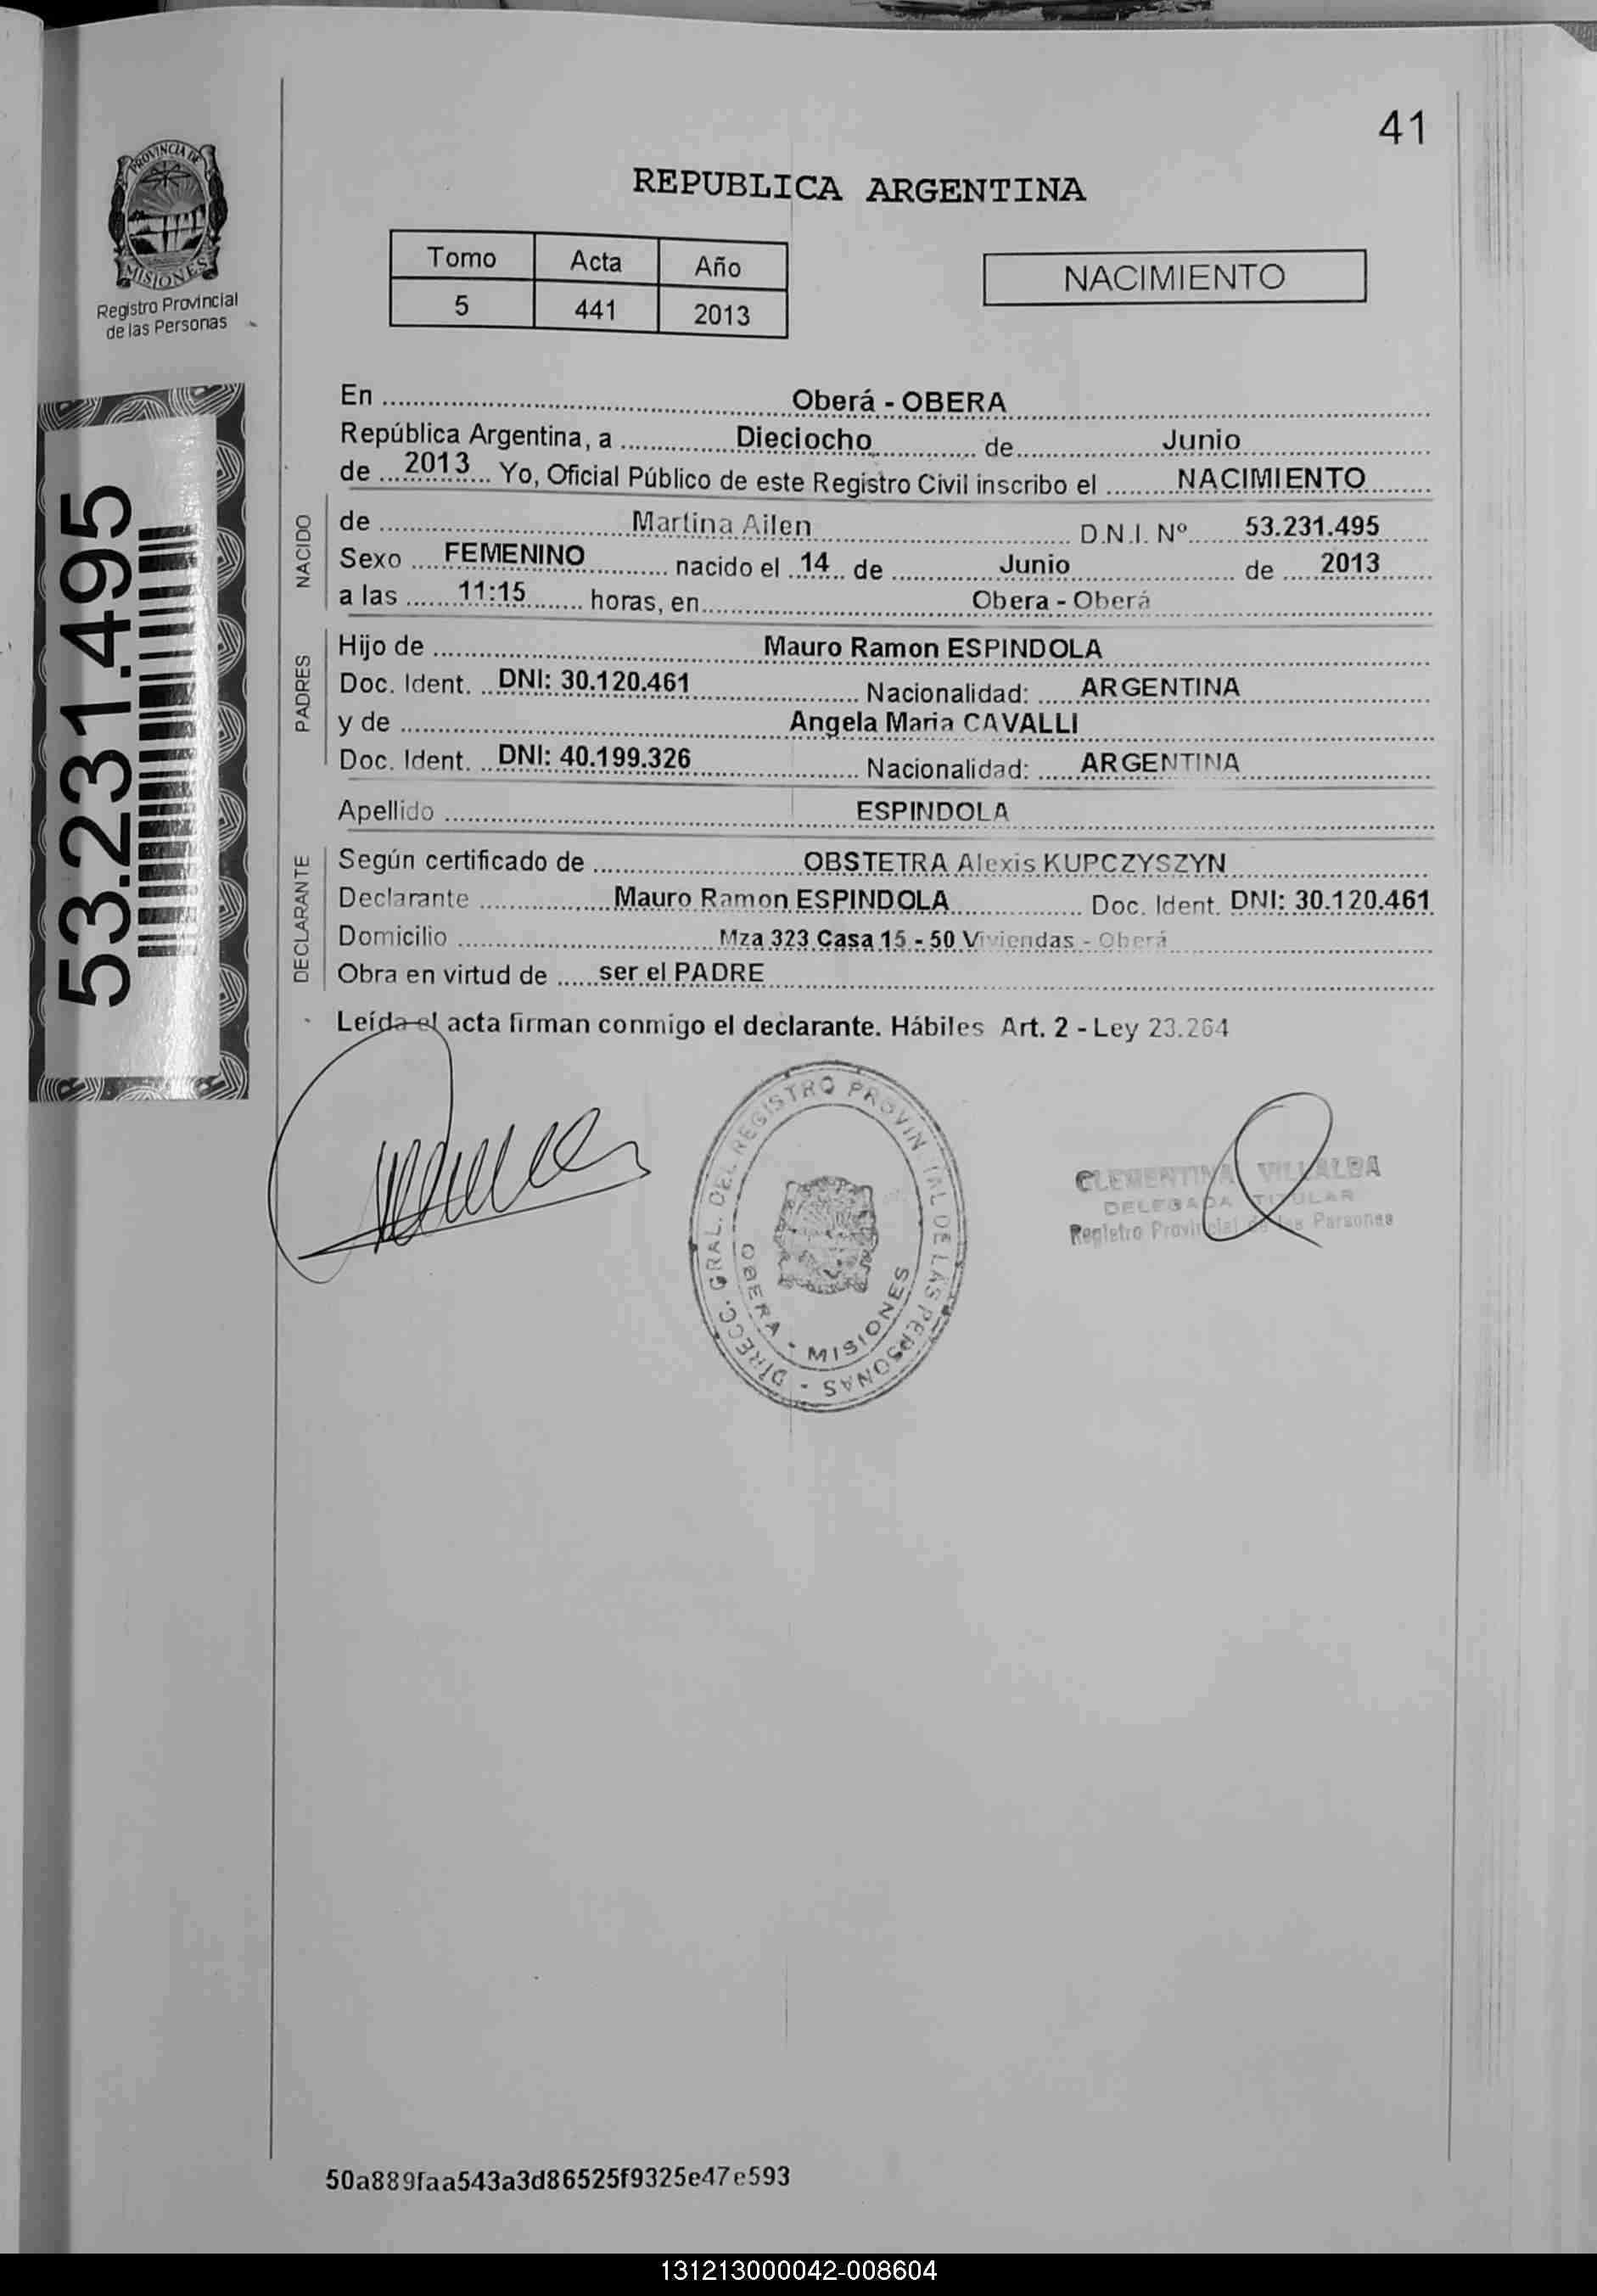 41
PROVINCIA DE
MISIONES
Registro Provincial
de las Personas
REPUBLICA ARGENTINA
Tomo Acta Año
5 441 2013
NACIMIENTO
53.231.495
En Oberá - OBERA
República Argentina, a Dieciocho de Junio
de 2013 Yo, Oficial Público de este Registro Civil inscribo el NACIMIENTO
NACIDO
de Martina Ailen D.N.I. Nº 53.231.495
Sexo FEMENINO nacido el 14 de Junio de 2013
a las 11:15 horas, en Obera - Oberá
PADRES
Hijo de Mauro Ramon ESPINDOLA
Doc. Ident. DNI: 30.120.461 Nacionalidad: ARGENTINA
y de Angela Maria CAVALLI
Doc. Ident. DNI: 40.199.326 Nacionalidad: ARGENTINA
Apellido ESPINDOLA
DECLARANTE
Según certificado de OBSTETRA Alexis KUPCZYSZYN
Declarante Mauro Ramon ESPINDOLA Doc. Ident. DNI: 30.120.461
Domicilio Mza 323 Casa 15 - 50 Viviendas - Oberá
Obra en virtud de ser el PADRE
Leída el acta firman conmigo el declarante. Hábiles Art. 2 - Ley 23.264
DIRECC. GRAL. DEL REGISTRO PROVINCIAL DE LAS PERSONAS -
OBERA - MISIONES
CLEMENTINA VILLALBA
DELEGADA TITULAR
Registro Provincial de las Personas
50a889faa543a3d86525f9325e47e593
131213000042-008604